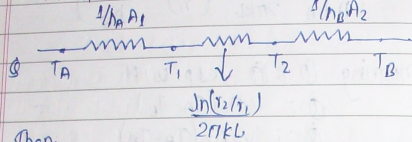 1/hA A1 1/hB A2
Q TA T1 T2 TB
ln(r2/r1)
2πkL
Then